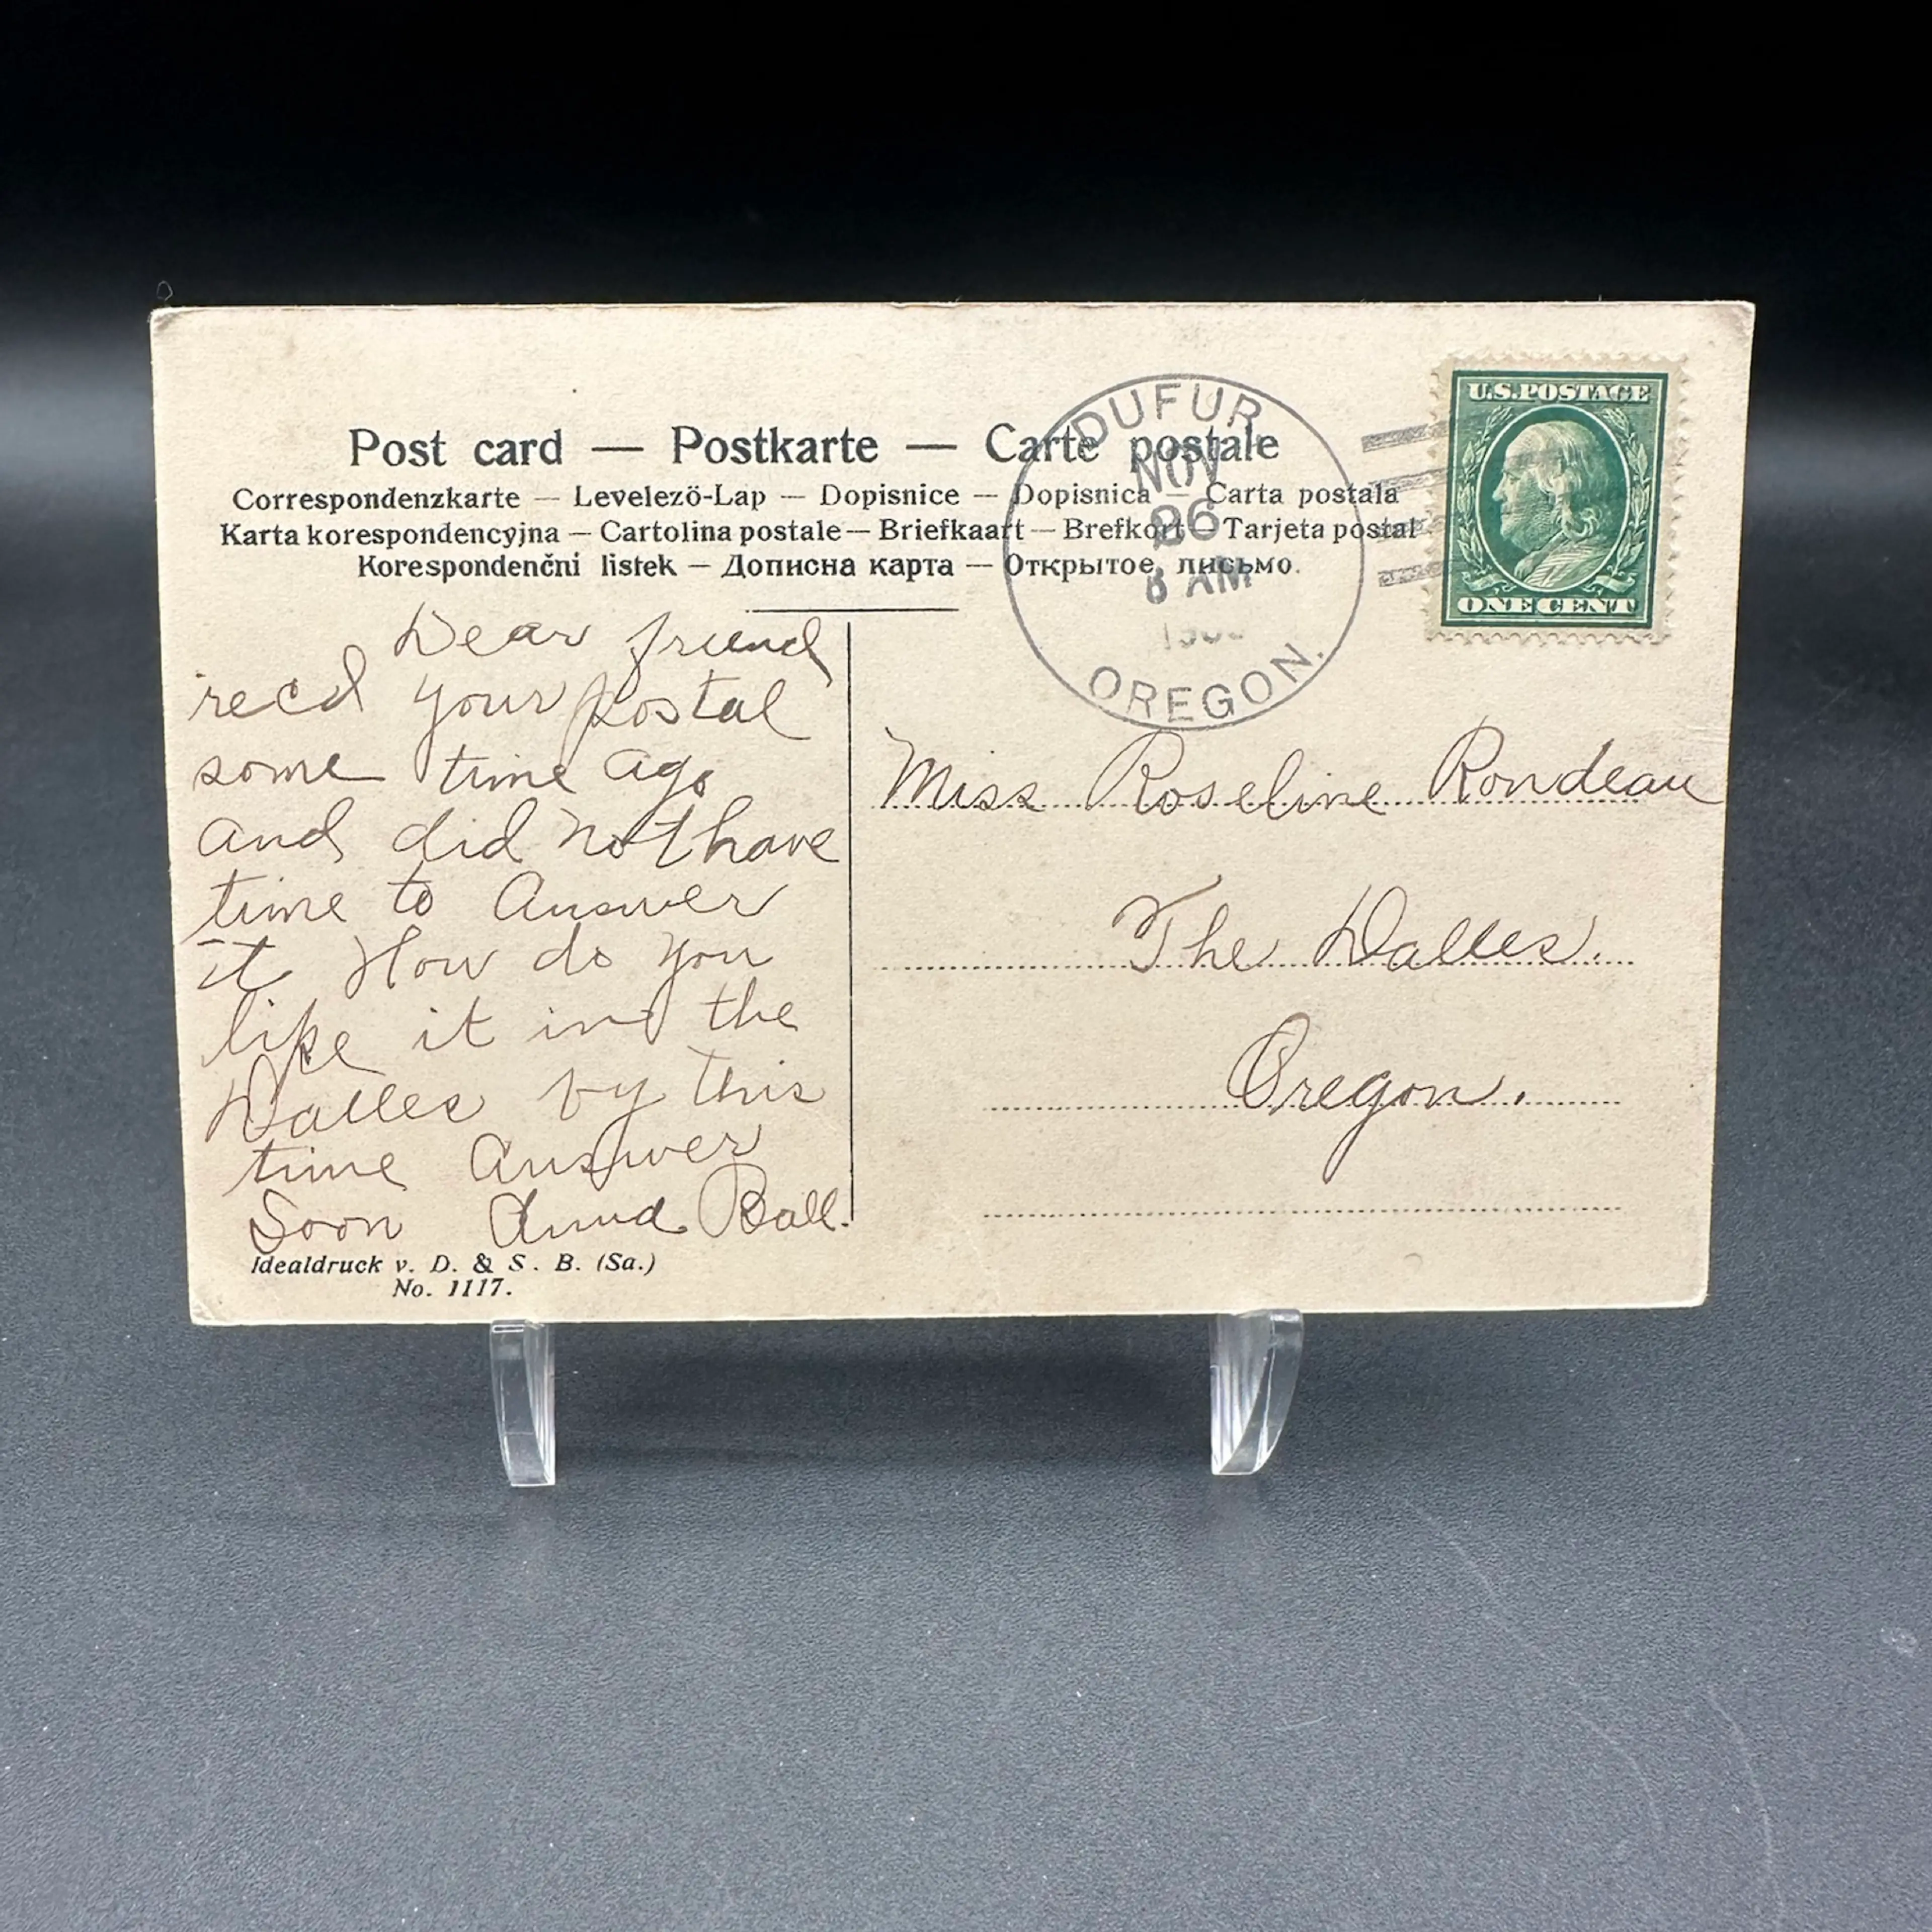 Post card — Postkarte — Carte postale
Correspondenzkarte — Levelezö-Lap — Dopisnice — Dopisnica — Carta postala
Karta korespondencyjna — Cartolina postale — Briefkaart — Brefkort — Tarjeta postal
Korespondenční listek — Дописна карта — Открытое письмо.
DUFUR
NOV
26
8 AM
OREGON.
U.S. POSTAGE
ONE CENT
Dear friend
recd your postal
some time ago
and did not have
time to Answer
it How do you
like it in the
Dalles by this
time Answer
Soon Anna Ball.
Miss Roseline Rondeau
The Dalles.
Oregon.
Idealdruck v. D. & S. B. (Sa.)
No. 1117.